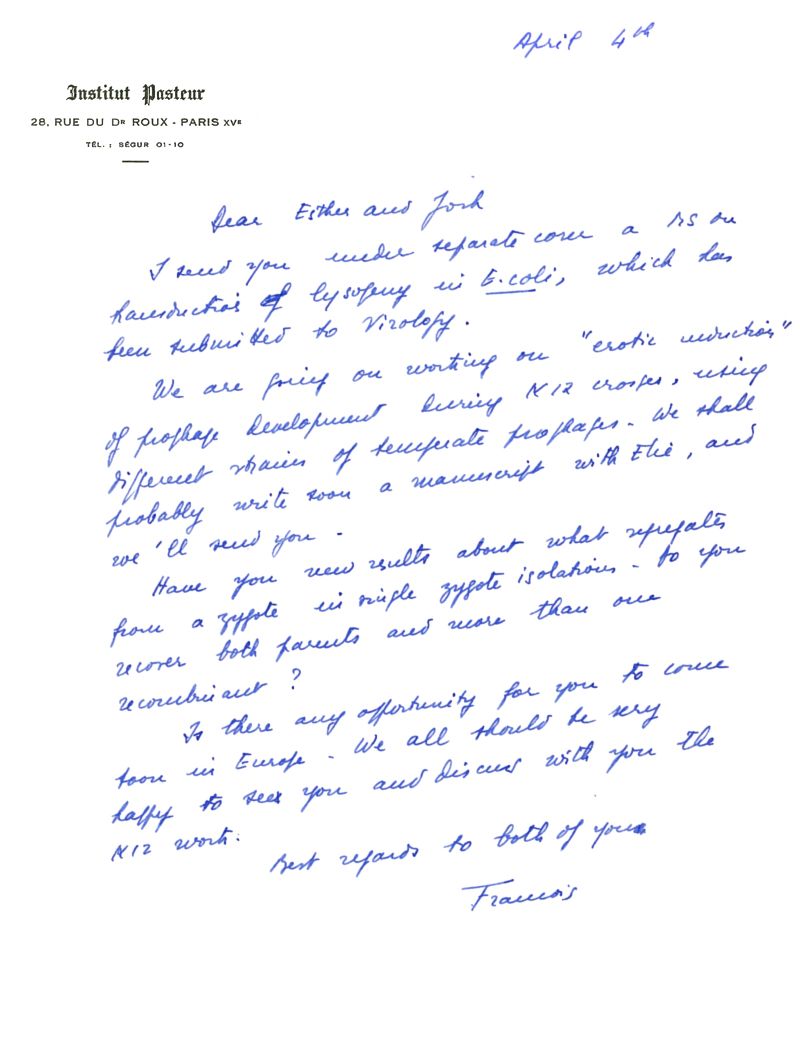 April 4th
Institut Pasteur
28, RUE DU Dr ROUX - PARIS XVe
TÉL. : SÉGUR 01-10
Dear Esther and Josh
I send you under separate cover a MS on
transduction of lysogeny in E. coli, which has
been submitted to Virology.
We are going on working on "erotic induction"
of prophage development during K12 crosses, using
different strains of temperate prophages - We shall
probably write soon a manuscript with Elie, and
we'll send you -
Have you new results about what segregates
from a zygote in single zygote isolations - to you
recover both parents and more than one
recombinant ?
Is there any opportunity for you to come
soon in Europe - We all should be very
happy to see you and discuss with you the
K12 work.
Best regards to both of you
Francois